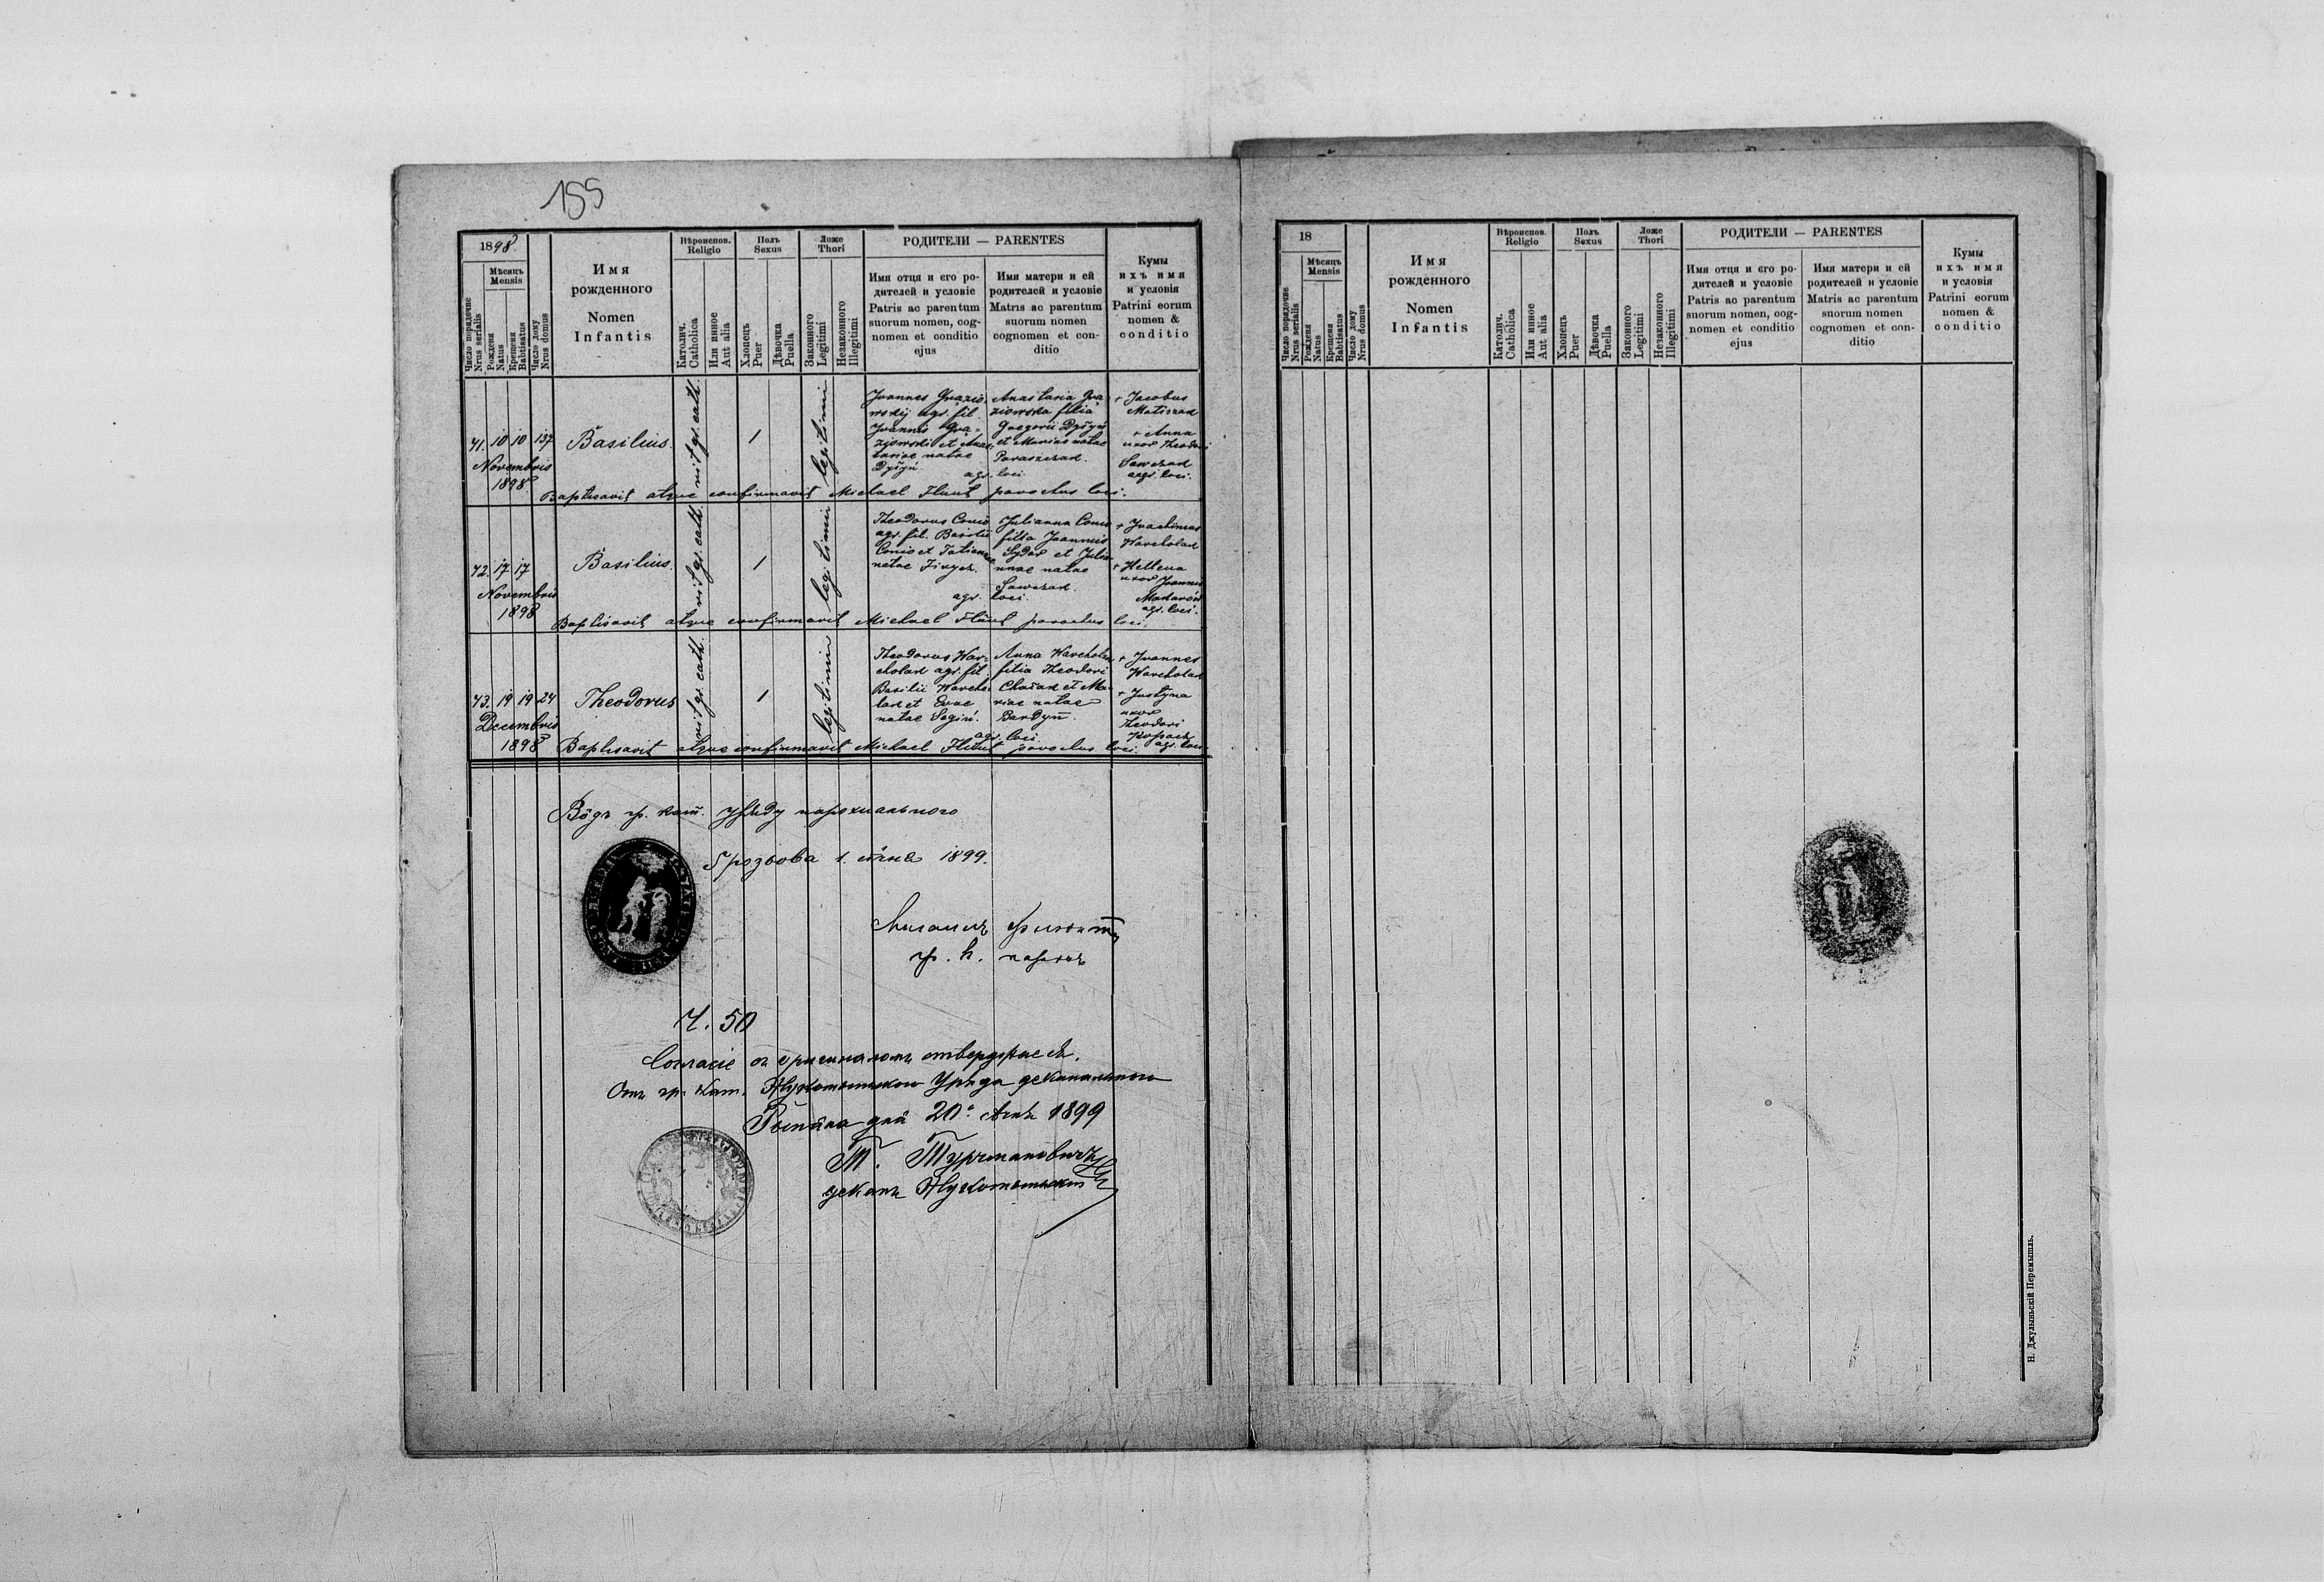 155
1898
Число порядочне
Nrus serialis
Мѣсяцъ
Mensis
Рожденя
Natus
Крещеня
Babtisatus
Число дому
Nrus domus
Имя
рожденного
Nomen
Infantis
Вѣроиспов.
Religio
Католич.
Catholica
Или инное
Aut alia
Полъ
Sexus
Хлопець
Puer
Дѣвочка
Puella
Ложе
Thori
Законного
Legitimi
Незаконного
Illegitimi
РОДИТЕЛИ — PARENTES
Имя отця и єго ро-
дителей и условіє
Patris ac parentum
suorum nomen, cog-
nomen et conditio
ejus
Имя матери и ей
родителей и условіє
Matris ac parentum
suorum nomen
cognomen et con-
ditio
Кумы
ихъ имя
и условія
Patrini eorum
nomen &
conditio
41. 10 10 137
Novembris
1898
Basilius
rit. gr. cath.
1
legitimi
Joannes
agr. fil.
Joannis
et Anas-
tasiae natae
Anastasia
filia
Gregorii
et Mariae natae
Paraszczak.
agr. loci
+ Jacobus
+ Anna
uxor Theodori
Sawczak
agr. loci.
Baptisavit atque confirmavit Michael parochus loci.
42. 17 17
Novembris
1898
Basilius
rit. gr. cath.
1
legitimi
Theodorus
agr. fil.
et Tatianae
natae
Julianna
filia Joannis
et Julia-
nnae natae
Sawczak.
agr. loci.
+ Joachimus
Warcholak
+ Hellena
uxor Joannis
agr. loci.
Baptisavit atque confirmavit Michael parochus loci.
43. 19 19 24
Decembris
1898
Theodorus
rit. gr. cath.
1
legitimi
Theodorus War-
cholak agr. fil.
Basilii Warcho-
lak et Evae
natae
Anna Warcholak
filia Theodori
et Ma-
riae natae
agr. loci.
+ Joannes
Warcholak
+ Justyna
uxor
Theodori
agr. loci
Baptisavit atque confirmavit Michael parochus loci.
Вôдъ гр. кат. уряду парохиального
1. 1899.
Михаилъ
гр. к. парохъ
Ч. 50
Согласіе съ оригиналомъ
Отъ гр. кат. Уряда деканального
дня 20. 1899
Т. Турчмановичъ
деканъ
18
Число порядочне
Nrus serialis
Мѣсяцъ
Mensis
Рожденя
Natus
Крещеня
Babtisatus
Число дому
Nrus domus
Имя
рожденного
Nomen
Infantis
Вѣроиспов.
Religio
Католич.
Catholica
Или инное
Aut alia
Полъ
Sexus
Хлопець
Puer
Дѣвочка
Puella
Ложе
Thori
Законного
Legitimi
Незаконного
Illegitimi
РОДИТЕЛИ — PARENTES
Имя отця и єго ро-
дителей и условіє
Patris ac parentum
suorum nomen, cog-
nomen et conditio
ejus
Имя матери и ей
родителей и условіє
Matris ac parentum
suorum nomen
cognomen et con-
ditio
Кумы
ихъ имя
и условія
Patrini eorum
nomen &
conditio
Н. Джулыньскій Перемышль.